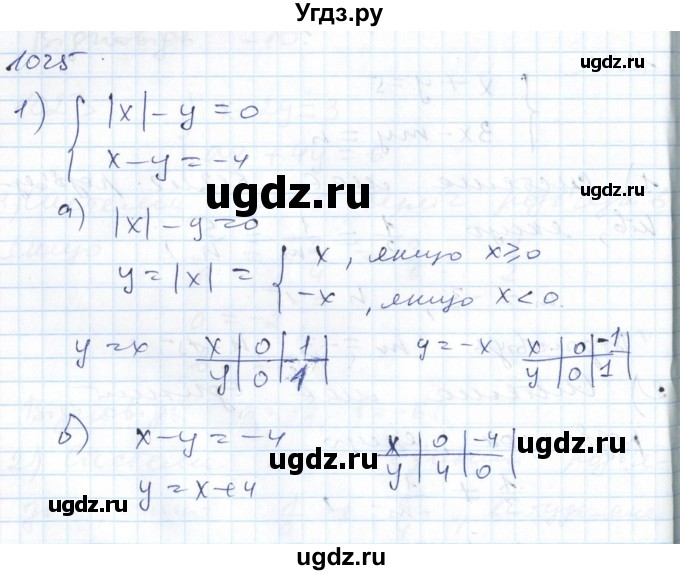 Угдз.ру
1025.
ugdz.ru
1) { |x| - y = 0
x - y = -4
ugdz.ru
ugdz.ru
а) |x| - y = 0
y = |x| = { x, якщо x ≥ 0
-x, якщо x < 0.
y = x
x | 0 | 1 |
y | 0 | 1 |
y = -x
x | 0 | -1 |
y | 0 | 1 |
ugdz.ru
ugdz.ru
б) x - y = -4
x | 0 | -4 |
y | 4 | 0 |
ugdz.ru
ugdz.ru
y = x + 4
ugdz.ru
ugdz.ru